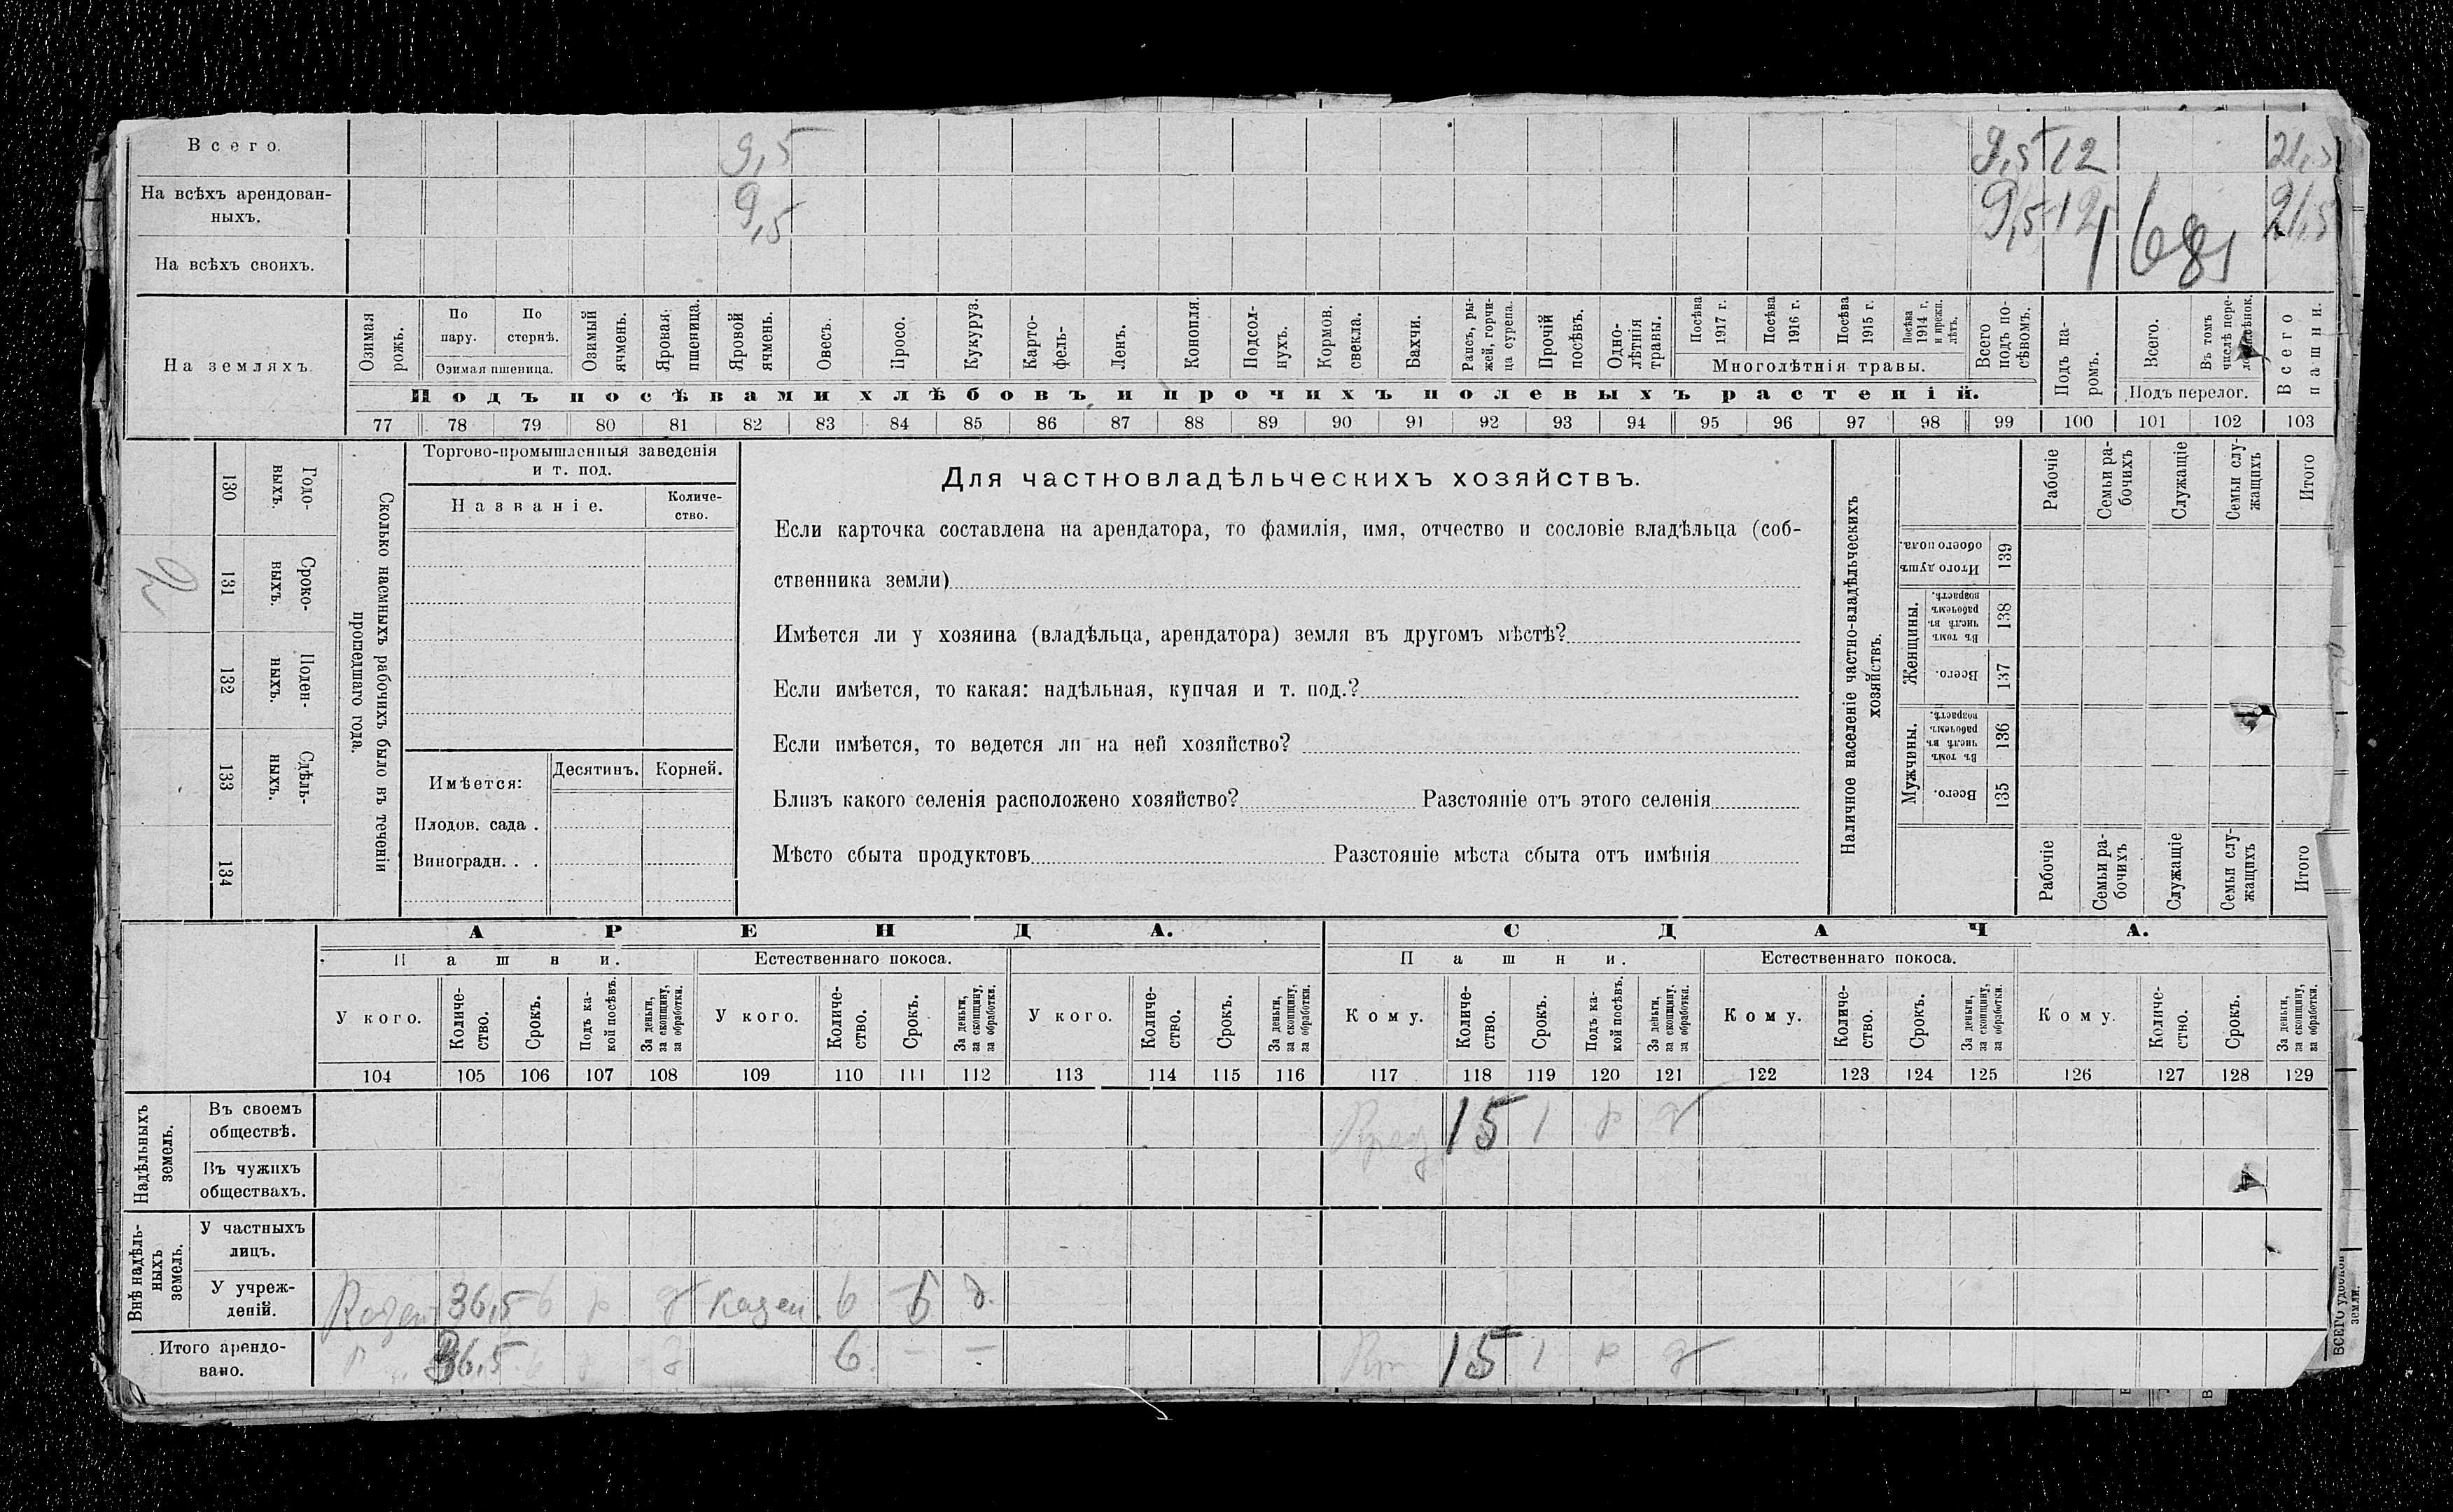 Всего. 9,5 9,5 12 21,5
На всѣхъ арендован-
ныхъ. 9,5 9,5 12 21,5
На всѣхъ своихъ.
На земляхъ.
Озимая рожь.
По пару.
По стернѣ.
Озимая пшеница.
Озимый ячмень.
Яровая пшеница.
Яровой ячмень.
Овесъ.
Просо.
Кукуруз.
Карто-
фель-
Ленъ.
Конопля.
Подсол-
нухъ.
Кормов.
свекла.
Бахчи.
Рапсъ, ры-
жей, горчи-
ца сурепа.
Прочій
посѣвъ.
Одно-
лѣтнія
травы.
Посѣва
1917 г.
Посѣва
1916 г.
Посѣва
1915 г.
Посѣва
1914 г.
и прежн.
лѣтъ.
Многолѣтнія травы.
Всего
подъ по-
сѣвомъ.
Подъ па-
ромъ.
Всего.
Въ томъ
числѣ пере-
Подъ перелог.
Всего
пашни.
Подъ посѣвами хлѣбовъ и прочихъ полевыхъ растеній.
77 78 79 80 81 82 83 84 85 86 87 88 89 90 91 92 93 94 95 96 97 98 99 100 101 102 103
130 Годо-
выхъ.
131 Сроко-
выхъ.
132 Поден-
ныхъ.
133 Сдѣль-
ныхъ.
134
Сколько наемныхъ рабочихъ было въ теченіи
прошедшаго года.
Торгово-промышленныя заведенія
и т. под.
Названіе.
Количе-
ство.
Имѣется:
Десятинъ.
Корней.
Плодов. сада .
Виноградн. . .
Для частновладѣльческихъ хозяйствъ.
Если карточка составлена на арендатора, то фамилія, имя, отчество и сословіе владѣльца (соб-
ственника земли)
Имѣется ли у хозяина (владѣльца, арендатора) земля въ другомъ мѣстѣ?
Если имѣется, то какая: надѣльная, купчая и т. под.?
Если имѣется, то ведется ли на ней хозяйство?
Близъ какого селенія расположено хозяйство? Разстояніе отъ этого селенія
Мѣсто сбыта продуктовъ Разстояніе мѣста сбыта отъ имѣнія
Наличное населеніе частно-владѣльческихъ
хозяйствъ.
Рабочіе
Семьи ра-
бочихъ
Служащіе
Семьи слу-
жащихъ
Итого
Итого душъ
обоего пола.
139
Женщины.
Въ томъ
числѣ въ
рабочемъ
возрастѣ.
138
Всего.
137
Мужчины.
Въ томъ
числѣ въ
рабочемъ
возрастѣ.
136
Всего.
135
Рабочіе
Семьи ра-
бочихъ
Служащіе
Семьи слу-
жащихъ
Итого
АРЕНДА.
СДАЧА.
Пашни.
Естественнаго покоса.
Пашни.
Естественнаго покоса.
У кого.
Количе-
ство.
Срокъ.
Подъ ка-
кой посѣвъ.
За деньги,
за скопщину,
за обработки.
У кого.
Количе-
ство.
Срокъ.
За деньги,
за скопщину,
за обработки.
У кого.
Количе-
ство.
Срокъ.
За деньги,
за скопщину,
за обработки.
Кому.
Количе-
ство.
Срокъ.
Подъ ка-
кой посѣвъ.
За деньги,
за скопщину.
за обработки.
Кому.
Количе-
ство.
Срокъ.
За деньги,
за скопщину,
за обработки.
Кому.
Количе-
ство.
Срокъ.
За деньги,
за скопщину,
за обработки.
104 105 106 107 108 109 110 111 112 113 114 115 116 117 118 119 120 121 122 123 124 125 126 127 128 129
Надѣльныхъ
земель.
Въ своемъ
обществѣ. 15 1
Въ чужихъ
обществахъ.
Внѣ надѣль-
ныхъ
земель.
У частныхъ
лицъ.
У учреж-
деній. 36,5 6 казен. 6 д.
Итого арендо-
вано. 36,5 6. – – 15 1
ВСЕГО удобной
земли.